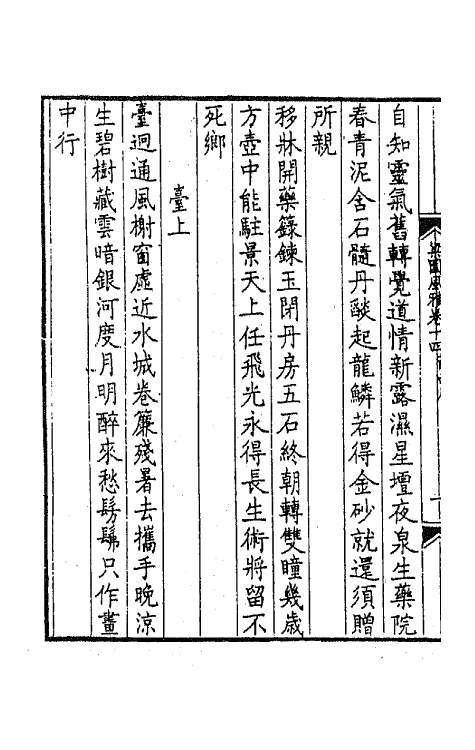 自知靈氣舊轉覺道情新露濕星壇夜泉生藥院
春青泥舍石髓丹酸起龍鱗若得金砂就還須贈
所親
移牀開藥籙鍊玉閉丹房五石終朝轉雙瞳幾歲
方壺中能駐景天上任飛光永得長生術將留不
死鄉
臺上
臺迥通風榭窗虛近水城卷簾殘暑去攜手晚涼
生碧樹藏雲暗銀河度月明醉來愁髣髴只作畫
中行
梁園風雅卷十四